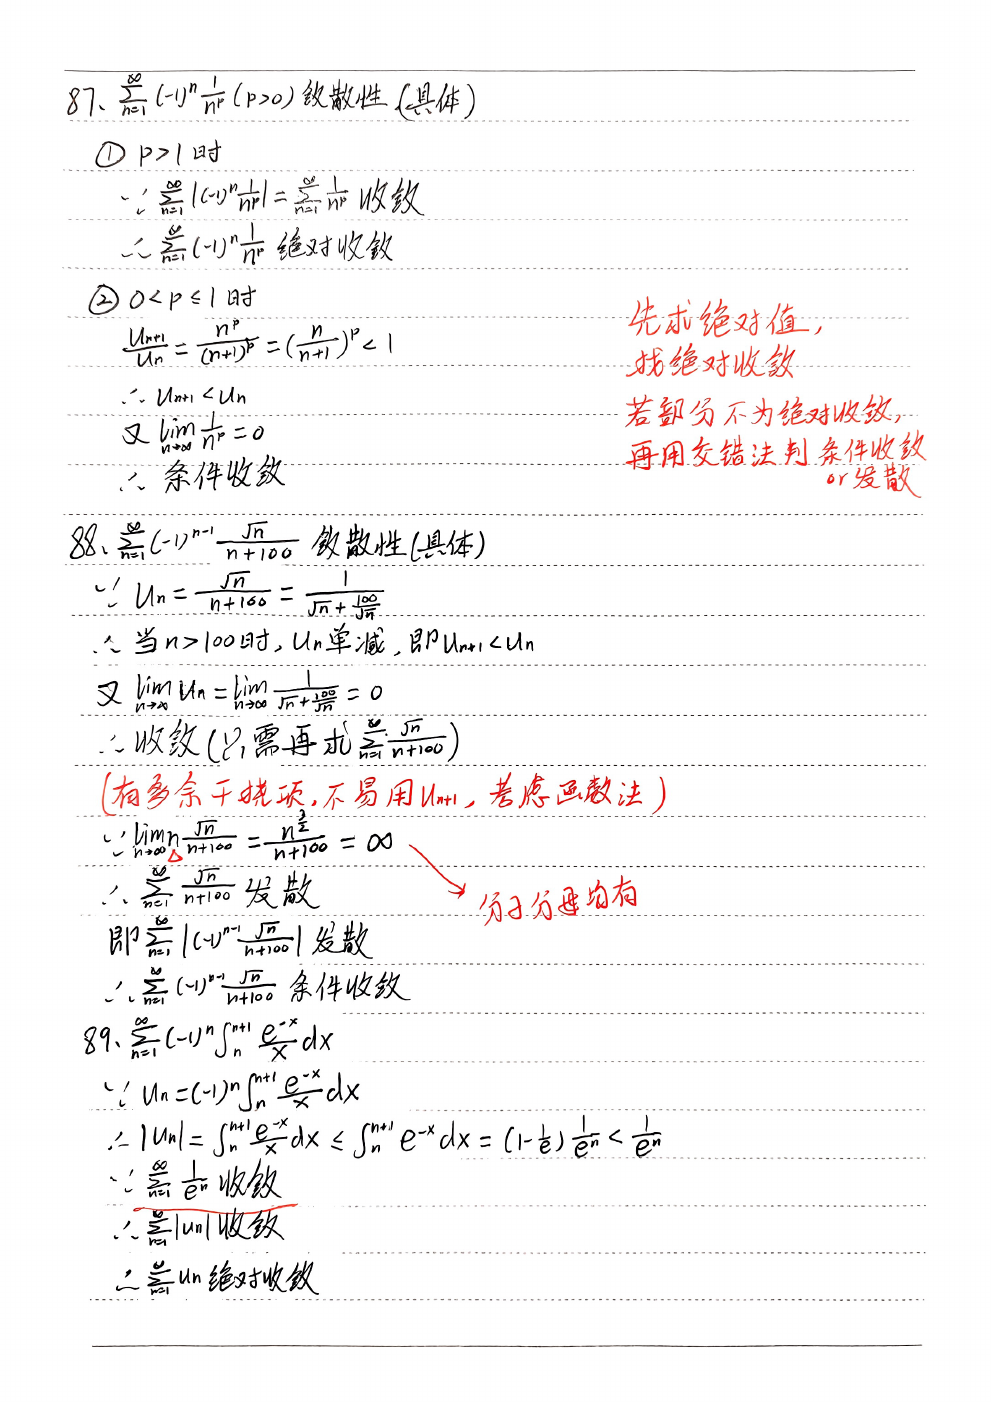 87、$\sum_{n=1}^{\infty}(-1)^n\frac{1}{n^p}$ (p>0) 敛散性 (具体)
① p>1时
∵ $\sum_{n=1}^{\infty}|(-1)^n\frac{1}{n^p}|=\sum_{n=1}^{\infty}\frac{1}{n^p}$ 收敛
∴ $\sum_{n=1}^{\infty}(-1)^n\frac{1}{n^p}$ 绝对收敛
② 0<p≤1时
$\frac{u_{n+1}}{u_n}=\frac{n^p}{(n+1)^p}=(\frac{n}{n+1})^p<1$
∴ $u_{n+1}<u_n$
又 $\lim_{n\to\infty}\frac{1}{n^p}=0$
∴ 条件收敛
先求绝对值,
找绝对收敛
若部分不为绝对收敛,
再用交错法判条件收敛
or发散
88、$\sum_{n=1}^{\infty}(-1)^{n-1}\frac{\sqrt{n}}{n+100}$ 敛散性(具体)
∵ $u_n=\frac{\sqrt{n}}{n+100}=\frac{1}{\sqrt{n}+\frac{100}{\sqrt{n}}}$
∴ 当n>100时, $u_n$单减, 即$u_{n+1}<u_n$
又 $\lim_{n\to\infty}u_n=\lim_{n\to\infty}\frac{1}{\sqrt{n}+\frac{100}{\sqrt{n}}}=0$
∴ 收敛(只需再求$\sum_{n=1}^{\infty}\frac{\sqrt{n}}{n+100}$)
(有多余干扰项, 不易用$u_{n+1}$, 考虑函数法)
∵ $\lim_{n\to\infty}n\frac{\sqrt{n}}{n+100}=\frac{n^{\frac{3}{2}}}{n+100}=\infty$
△
∴ $\sum_{n=1}^{\infty}\frac{\sqrt{n}}{n+100}$ 发散
分子分母均有
即 $\sum_{n=1}^{\infty}|(-1)^{n-1}\frac{\sqrt{n}}{n+100}|$ 发散
∴ $\sum_{n=1}^{\infty}(-1)^{n-1}\frac{\sqrt{n}}{n+100}$ 条件收敛
89、$\sum_{n=1}^{\infty}(-1)^n\int_n^{n+1}\frac{e^{-x}}{x}dx$
∵ $u_n=(-1)^n\int_n^{n+1}\frac{e^{-x}}{x}dx$
∴ $|u_n|=\int_n^{n+1}\frac{e^{-x}}{x}dx\le\int_n^{n+1}e^{-x}dx=(1-\frac{1}{e})\frac{1}{e^n}<\frac{1}{e^n}$
∵ $\sum_{n=1}^{\infty}\frac{1}{e^n}$收敛
∴ $\sum_{n=1}^{\infty}|u_n|$收敛
∴ $\sum_{n=1}^{\infty}u_n$绝对收敛